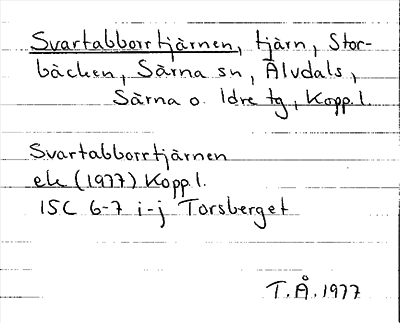 Svartabborrtjärnen, tjärn, Stor-
bäcken, Särna sn, Älvdals,
Särna o. Idre tg, Kopp. l.
Svartabborrtjärnen
ek (1977) Kopp l.
15C 6-7 i-j Torsberget
T.Å. 1977